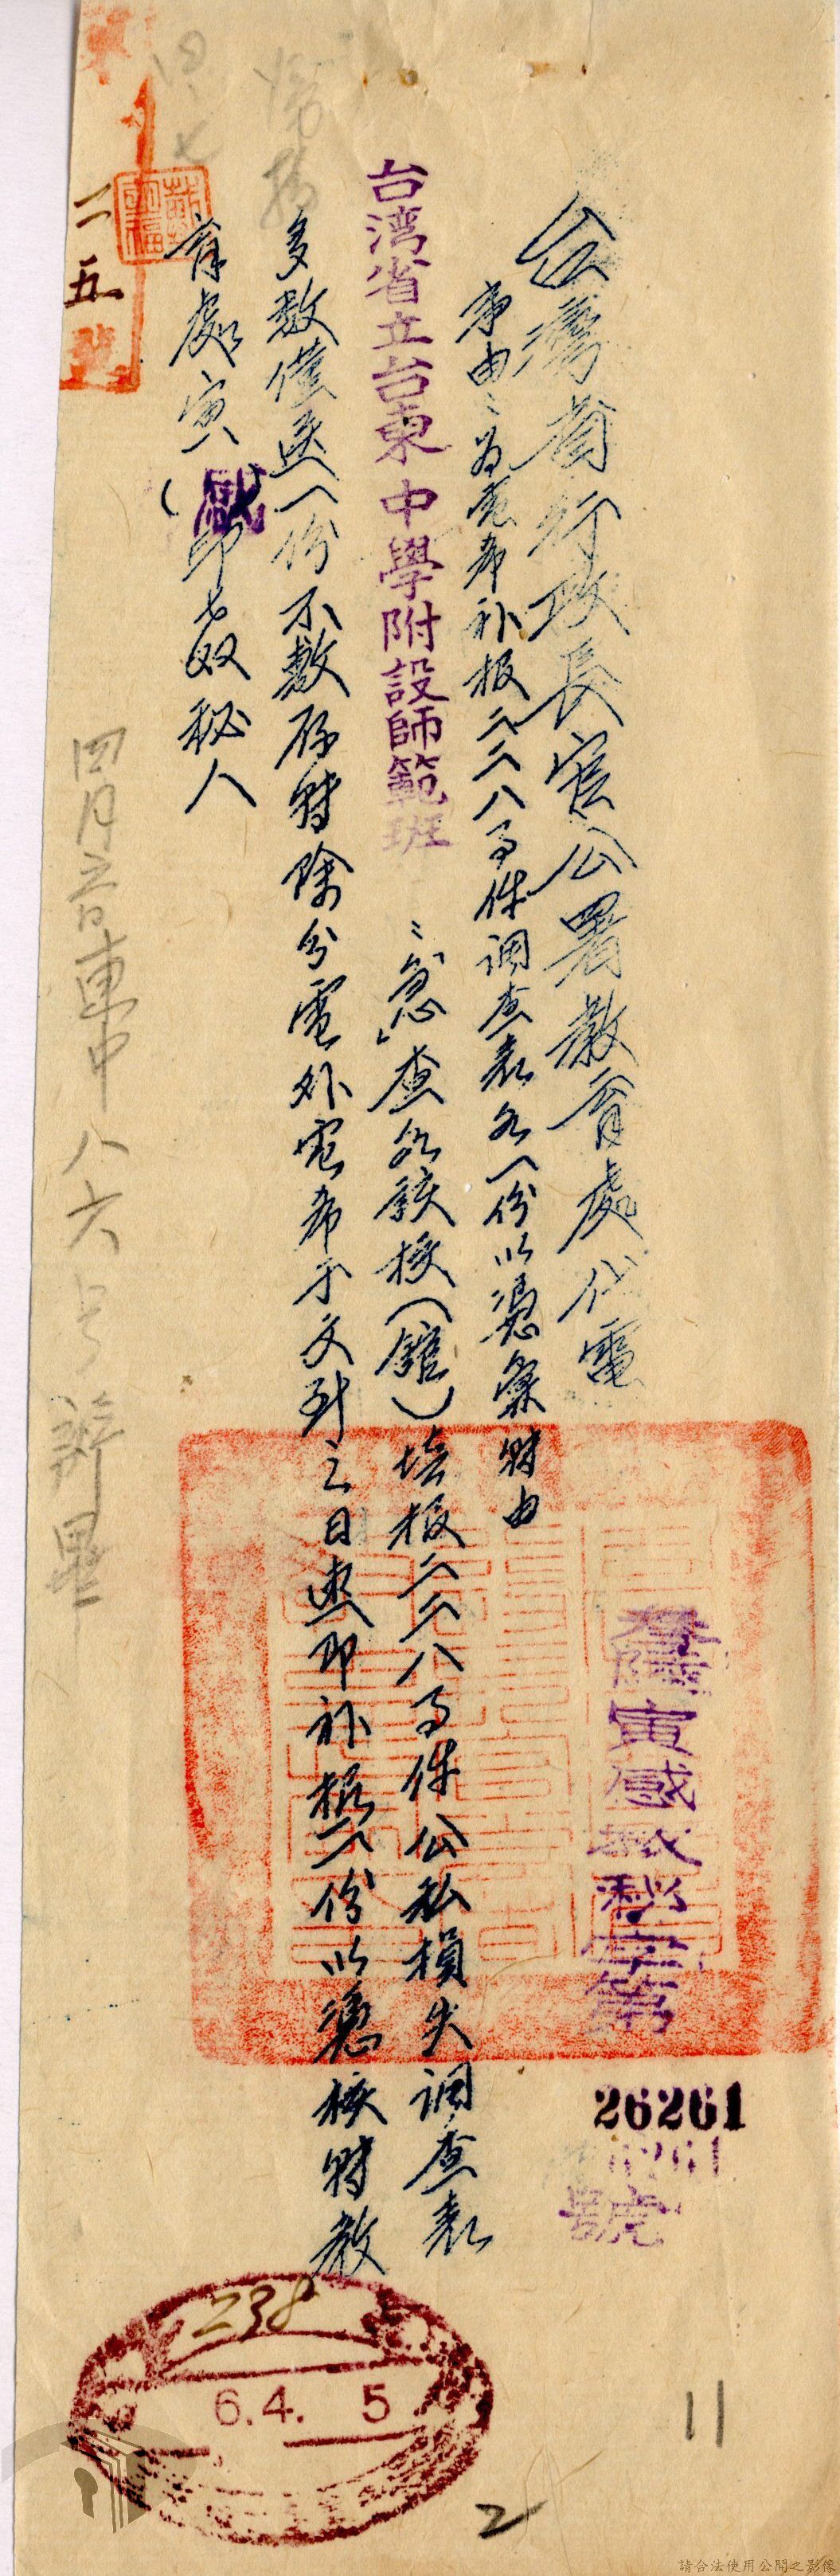 台灣省行政長官公署教育處代電
寅感教秘字第
26261
號
事由:為電希補报二二八事件調查表各一份以憑彙轉由
台湾省立台東中學附設師範班
:「急」查各該校(館)填报二二八事件公私損失調查表
多数僅送一份不敷存轉除分電外電希于文到之日速即补报一份以憑核轉教
育處寅( )印
二五號
四月 日東中八六号辦畢
238
6.4. 5
11
2
請合法使用公開之影像